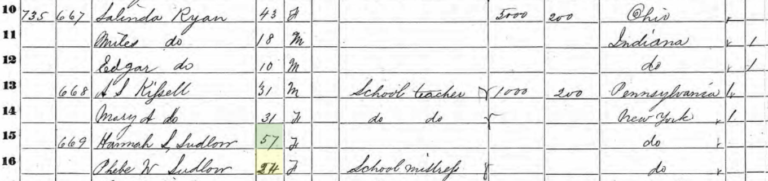 10 735 667 Salinda Ryan 43 F 5000 200 Ohio
11 Miles do 18 M Indiana 1
12 Edgar do 10 M do 1
13 668 A S Kissell 31 M School teacher 1000 200 Pennsylvania 1
14 Mary A do 31 F do do New York 1
15 669 Hannah S, Sudlow 57 F do
16 Phebe W Sudlow 24 F School mistress do